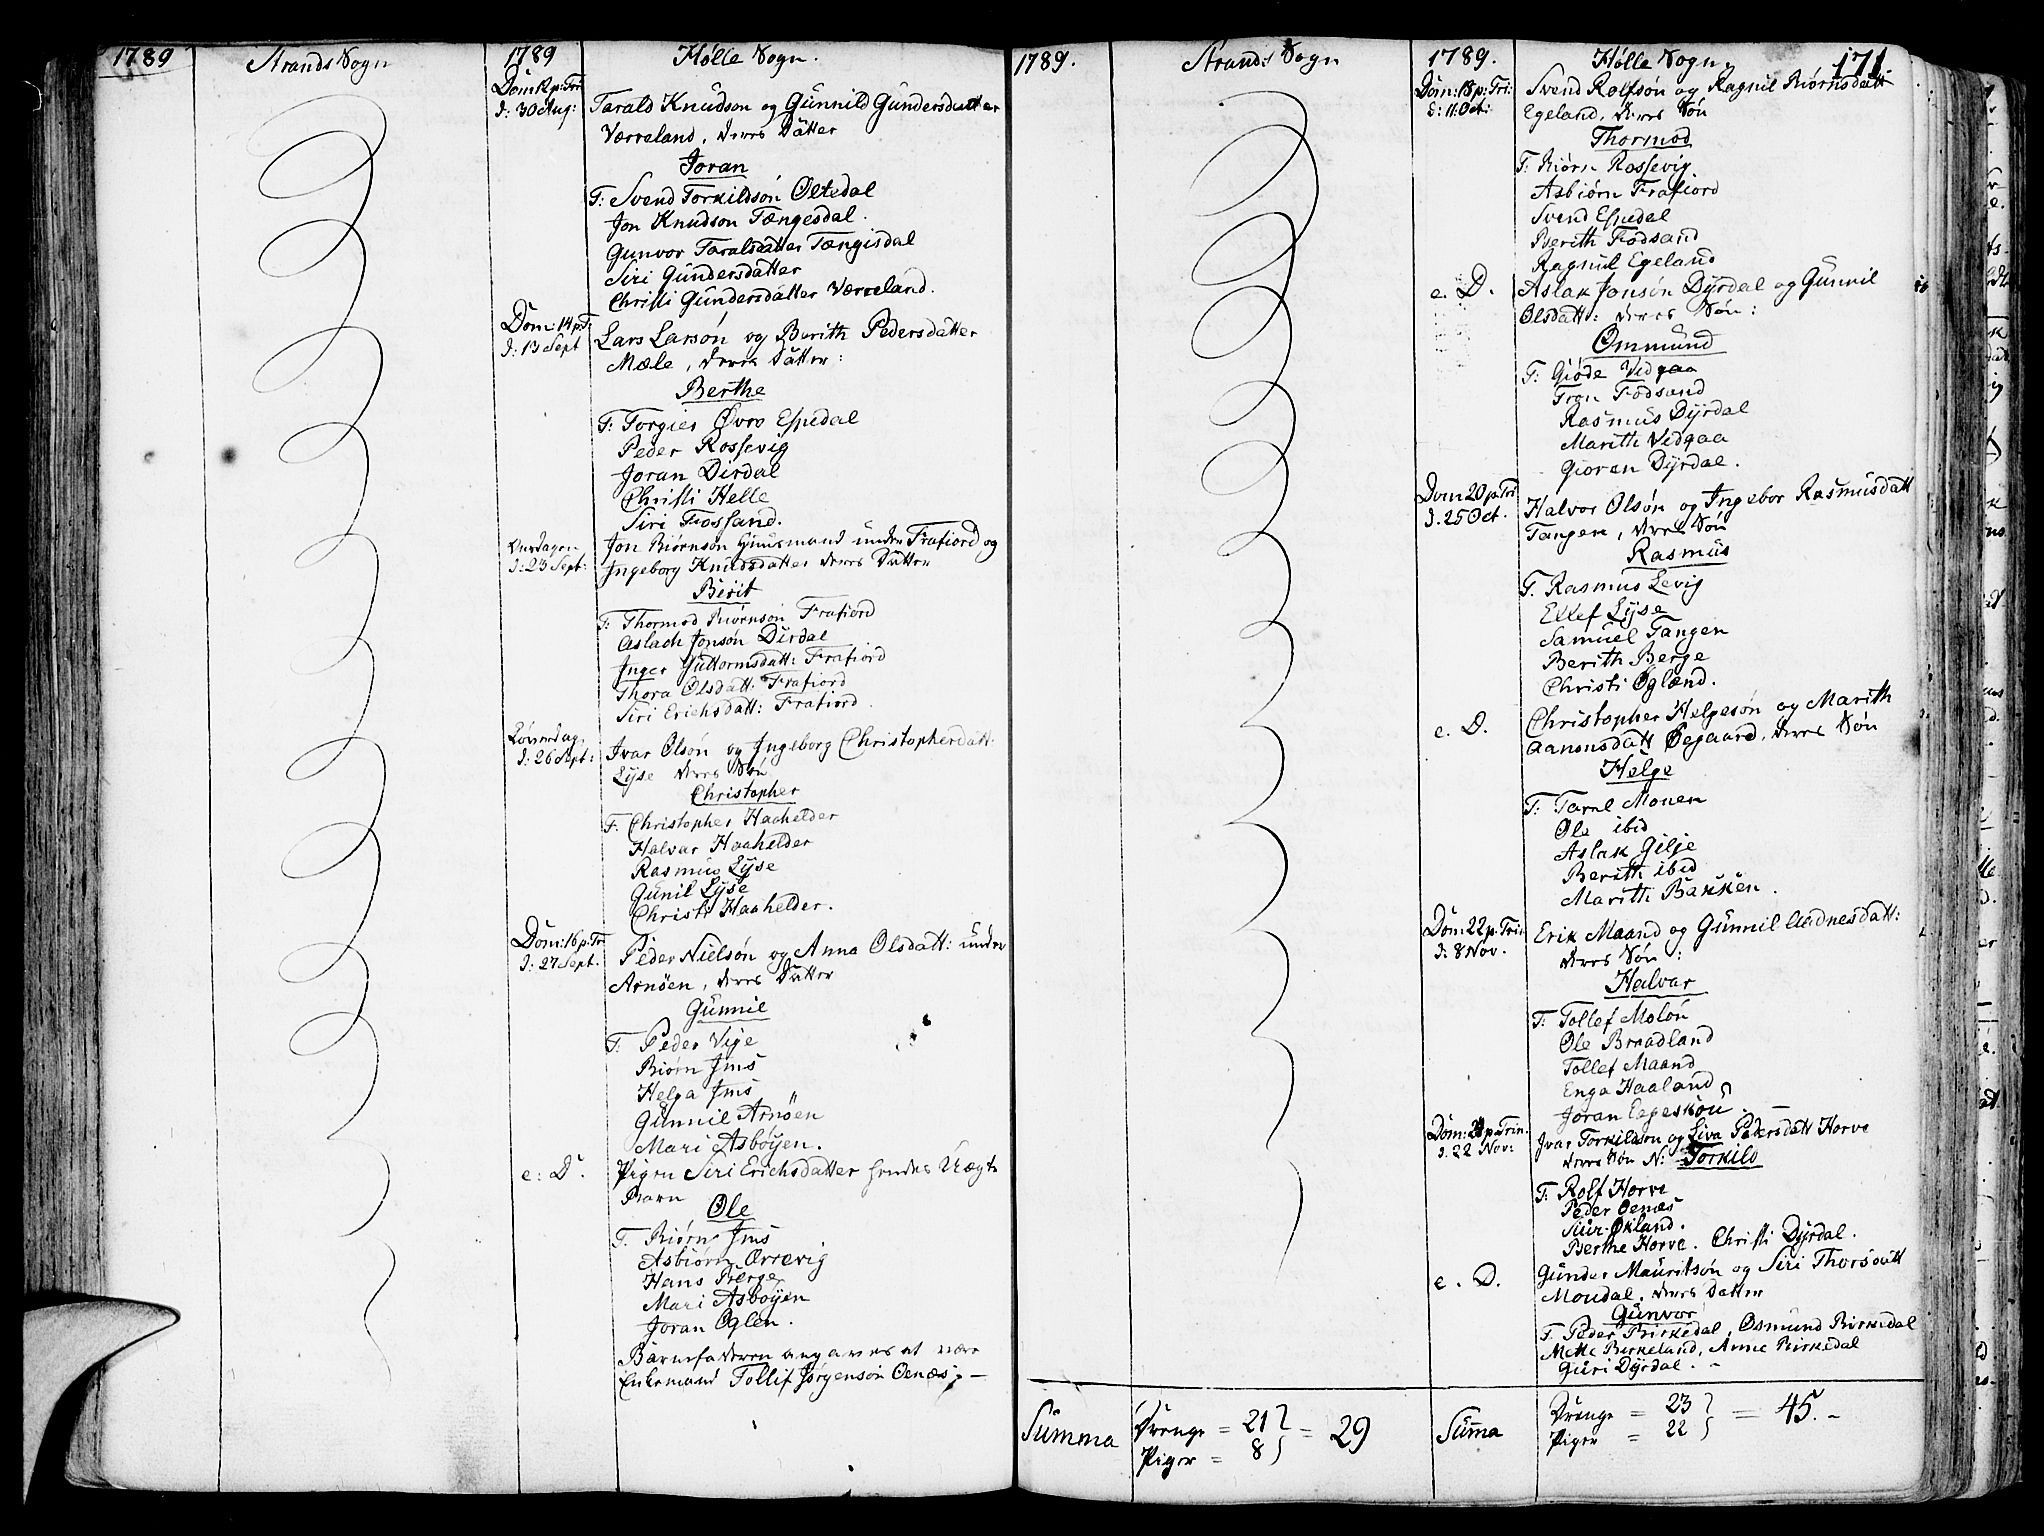 1789
Strands Sogn
1789
Hølle Sogn.
Dom 12 p: Tri
d: 30 Aug:
Tarald Knudson og Gunnild Gundersdatter
Værreland, deres Datter
Joran
F: Svend Torkildsøn Øltedal
Jon Knudson Tængesdal.
Gunvor Taralsdatter Tængisdal
Siri Gundersdatter
Christi Gundersdatter Værreland.
Dom: 14 p: T.
d: 13 Sept
Lars Larsøn og Berith Pedersdatter
Mæle, deres Datter:
Berthe
F: Torgier Øvre Espedal
Peder Rossevig
Joran Dirdal
Christi Helle
Siri Fossand.
Onsdagen
d: 23 Sept:
Jon Biørnsøn Huusmand under Frafiord og
Ingeborg Knudsdatter deres Datter
Berit
F: Thormod Biørnsøn Frafiord
Aslach Jonsøn Dirdal
Inger Guttormsdatt: Frafiord
Thora Olsdatt: Frafiord
Siri Erichsdatt: Frafiord.
Løverdag,
d: 26 Sept:
Ivar Olsøn og Ingeborg Christopherdatt:
Lyse deres Søn
Christopher
F. Christopher Haahelder
Halvar Haahelder
Rasmus Lyse
Gunil Lyse
Christi Haahelder.
Dom: 16 p: Tr
d: 27 Sept.
Peder Nielsøn og Anna Olsdatt: under
Arnøen, deres Datter
Gunnil
F. Peder Vige
Biørn Jms
Helga Jms
Gunnil Arnøen
Mari Asbøyen.
e: D.
Pigen Siri Erichsdatter hendes Uægte
Barn
Ole
F. Biørn Jms
Asbiørn Ørrevig
Hans Berge
Mari Asbøyen
Joran Oglen.
Barnefaderen angaves at være
Enkemand Tollif Jørgensøn Oenæs. —
1789.
Strands Sogn
1789.
Hølle Sogn.
171
Dom: 18 p: Tri:
d: 11 Oct:
Svend Rolfsøn og Ragnil Biørnsdatt
Egeland, deres Søn
Thormod
F: Biørn Rossevig.
Asbiørn Frafiord
Svend Espedal
Berith Fodsand
Ragnil Egeland
e. D.
Aslak Jonsøn Dyrdal og Gunnil
Olsdatt: deres Søn:
Ommund
F: Giøde Vedgaa
Tron Fodsand
Rasmus Dyrdal
Marith Vedgaa
Gioran Dyrdal.
Dom 20 p. Tri
d. 25 Oct.
Halvor Olsøn og Ingebor Rasmusdatt
Tangen, deres Søn
Rasmus
F. Rasmus Levig
Ellef Lyse
Samuel Tangen
Berith Berge
Christi Oglænd.
e. D.
Christopher Helgesøn og Marith
Aanonsdatt Øegaard. deres Søn
Helge
F: Tarel Monen
Ole ibid
Aslak Gilje
Berith ibid
Marith Bakken.
Dom: 22 p. Trin
d: 8 Nov.
Erik Maand og Gunnil Aadnesdatt:
deres Søn:
Halvar
F: Tollef Moløn
Ole Braadland
Tollef Maand
Enga Haaland
Joran Egeskou.
Dom: 24 p. Trin.
d. 22 Nov:
Ivar Torkildson og Liva Pedersdatt Horve
deres Søn N: Torkild
F. Rolf Horve
Peder Oenæs
Siur Økland.
Berthe Horve. Christi Dyrdal.
e. D.
Gunder Mauritsøn og Siri Thorsdatt
Moudal. deres Datter
Gunvor
F. Peder Birkedal, Osmund Birkedal
Mette Birkeland, Anne Birkedal
Guri Dyrdal. -
Summa
Drenge = 21
Piger = 8
= 29
Suma
Drenge = 23
Piger = 22
= 45. -